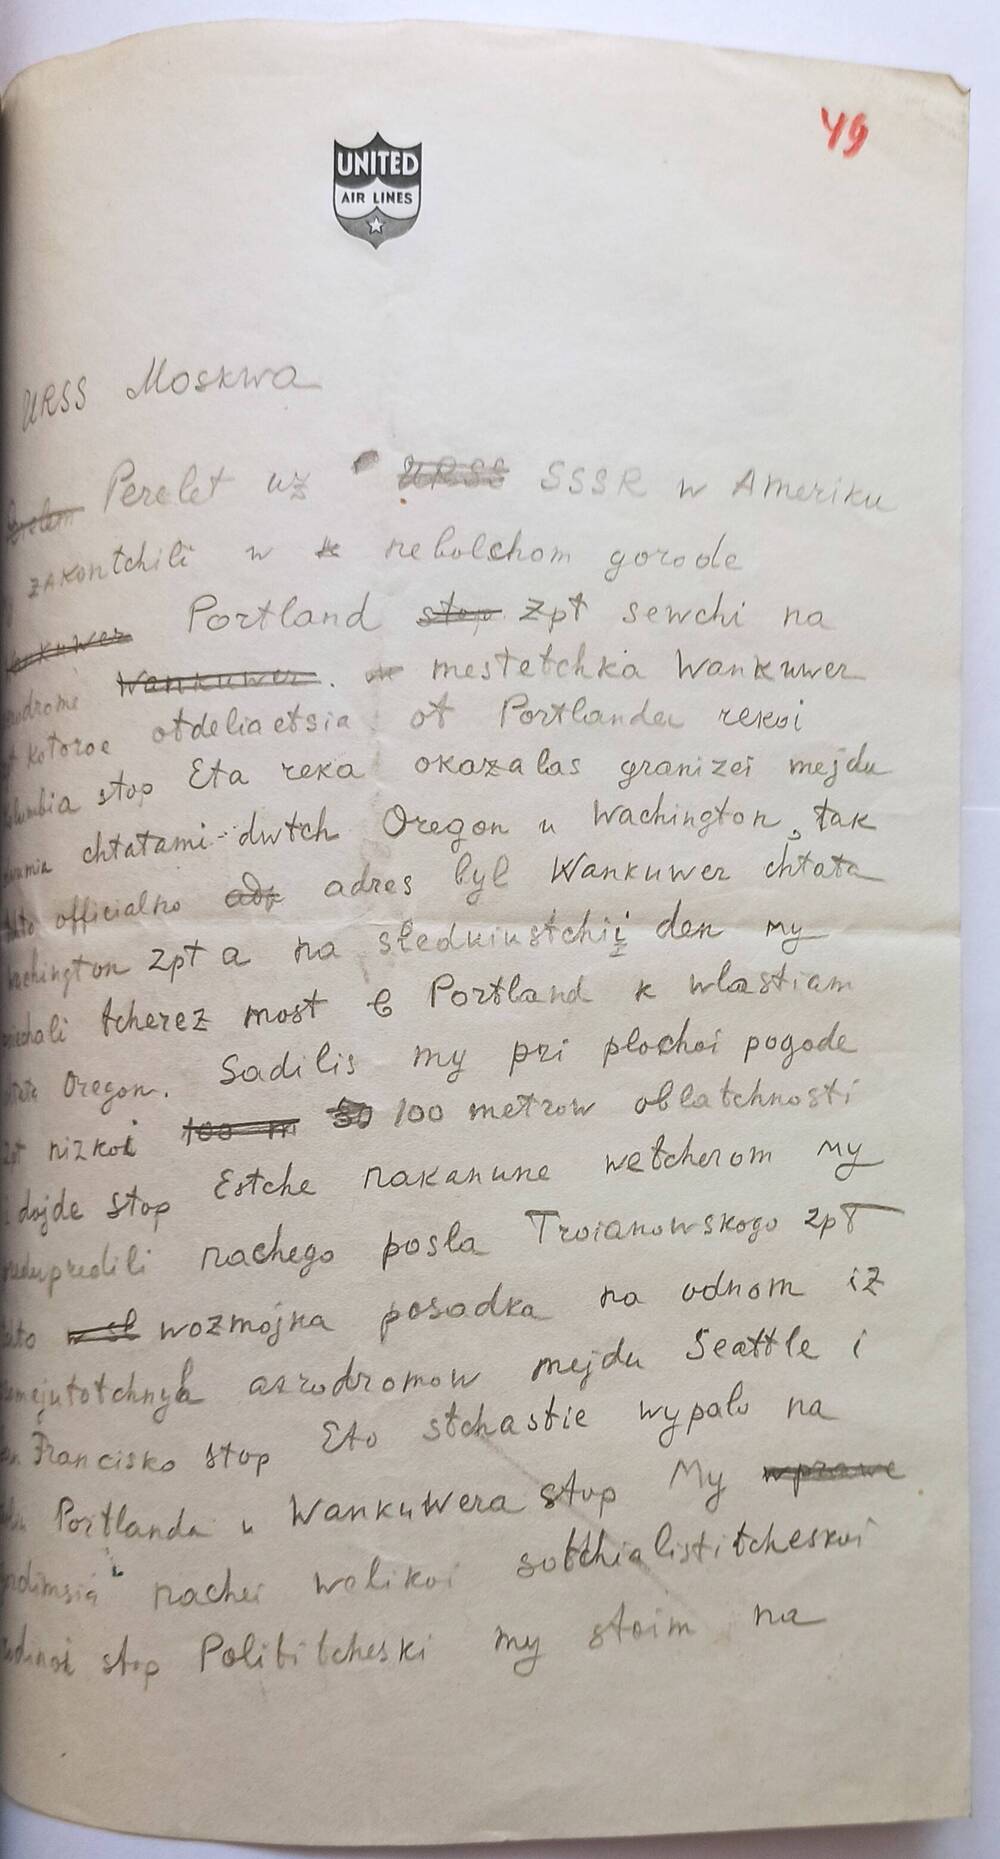 49
UNITED
AIR LINES
URSS Moskwa
Perelet uz URSS SSSR w Ameriku
zakontchili w nebolchom gorode
Portland stop zpt sewchi na
Wankuwer mestetchka Wankuwer
kotoroe otdeliaetsia ot Portlanda rekoi
stop Eta reka okazalas granizei mejdu
chtatami dwtch Oregon u Wachington, tak
officialno adres byl Wankuwer chtata
zpt a na sledniustchii den my
tcherez most b Portland k wlastiam
Oregon. Sadilis my pri plochoi pogode
nizkoi 100 m 50 100 metrow oblatchnosti
i dojde stop Estche nakanune wetcherom my
nachego posla Troianowskogo zpt
wozmojna posadka na odnom iz
aerodromow mejdu Seattle i
Francisko stop Eto stchastie wypalo na
Portlanda u Wankuwera stop My
nachei welikoi sottchialistitcheskoi
stop Polititcheski my stoim na